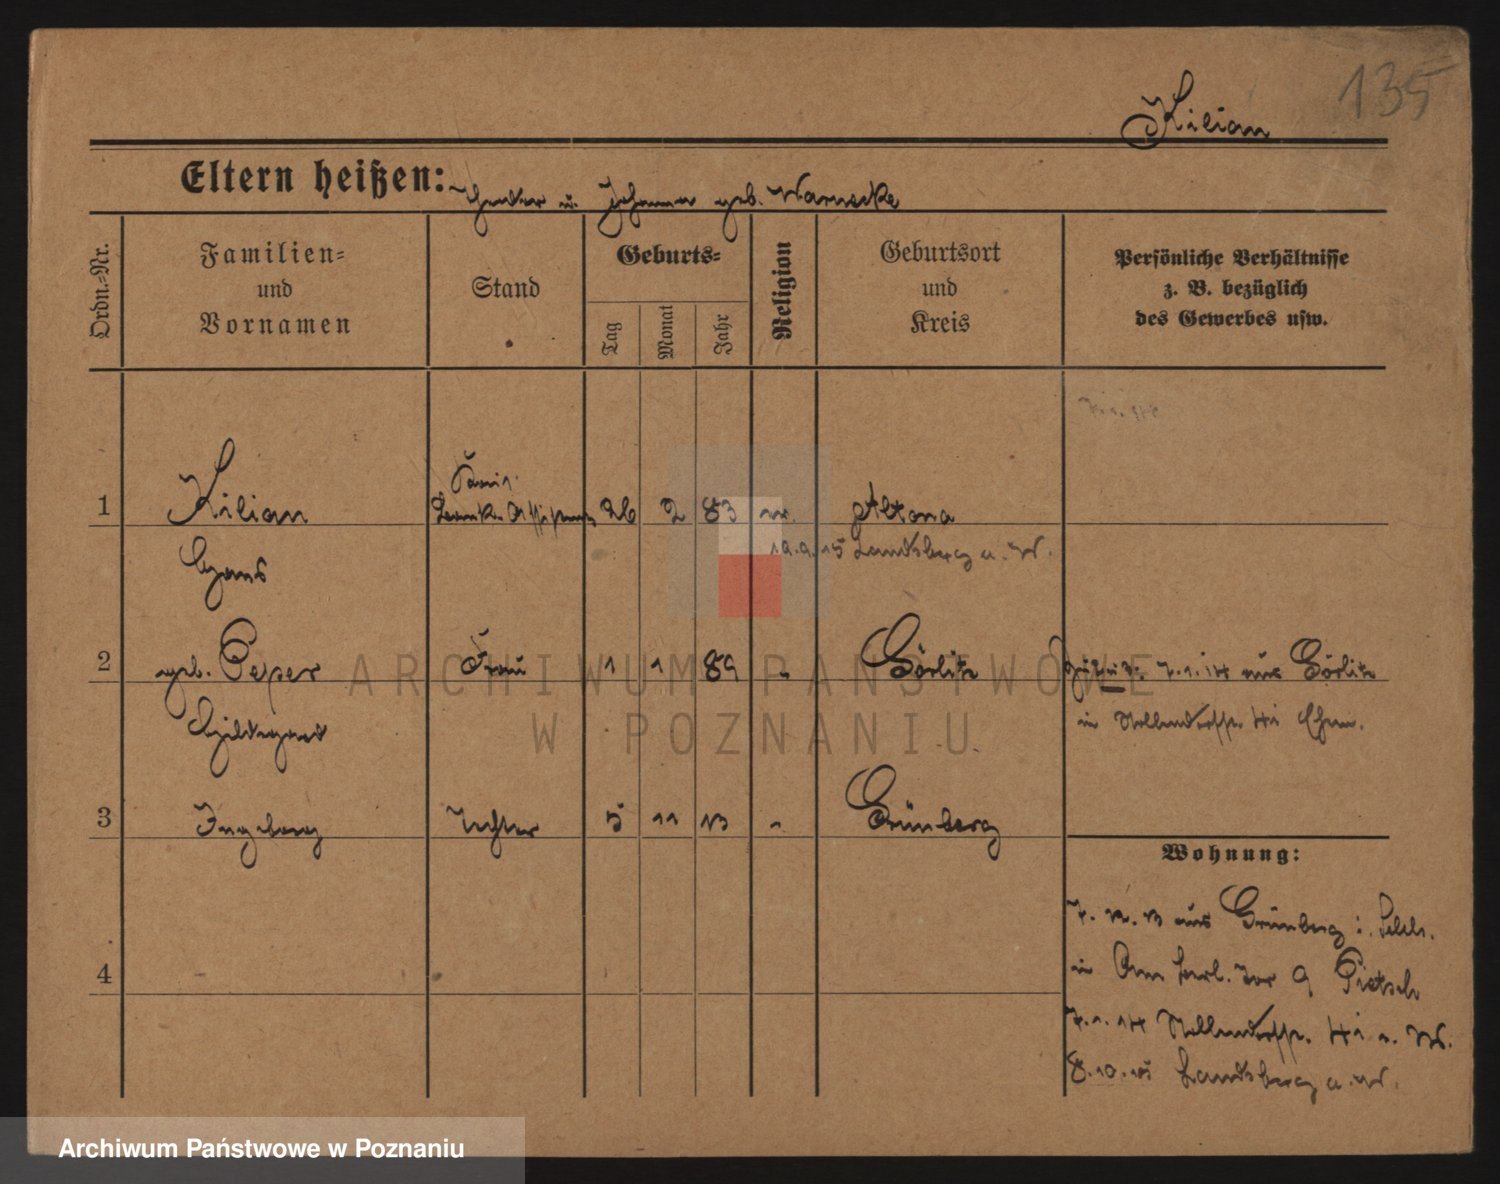 135
Kilian
Eltern heißen: Theodor u. Johanna geb. Warnecke
Ordn.-Nr.
Familien-
und
Vornamen
Stand
Geburts-
Tag
Monat
Jahr
Religion
Geburtsort
und
Kreis
Persönliche Verhältnisse
z. B. bezüglich
des Gewerbes usw.
7.1.14
1 Kilian 26 2 83 Altona
Hans 19.9.15 Landsberg a. W.
2 geb. Peper Frau 1 1 89 " Görlitz 7.1.14 aus Görlitz
Hildegard in Nollendorfstr. 41
3 Ingeborg Tochter 5 11 13 " Grünberg
Wohnung:
7. 12. 13 aus Grünberg i. Schles.
in Am Berl. Tor 9 Pietsch
4
7.1.14 Nollendorfstr. 41 a. W.
8.10.15 Landsberg a. W.
ARCHIWUM PAŃSTWOWE
W POZNANIU
Archiwum Państwowe w Poznaniu